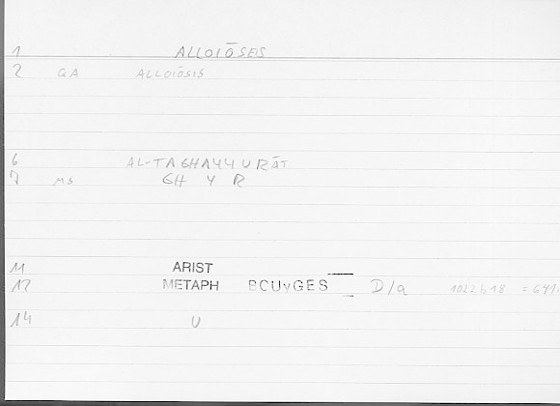 1 ALLOIŌSEIS
2 GA ALLOIŌSIS
6 AL-TAGHAYYURĀT
7 MS GH Y R
11 ARIST
12 METAPH BOUYGES D/a 1022b18 = 641.
14 U